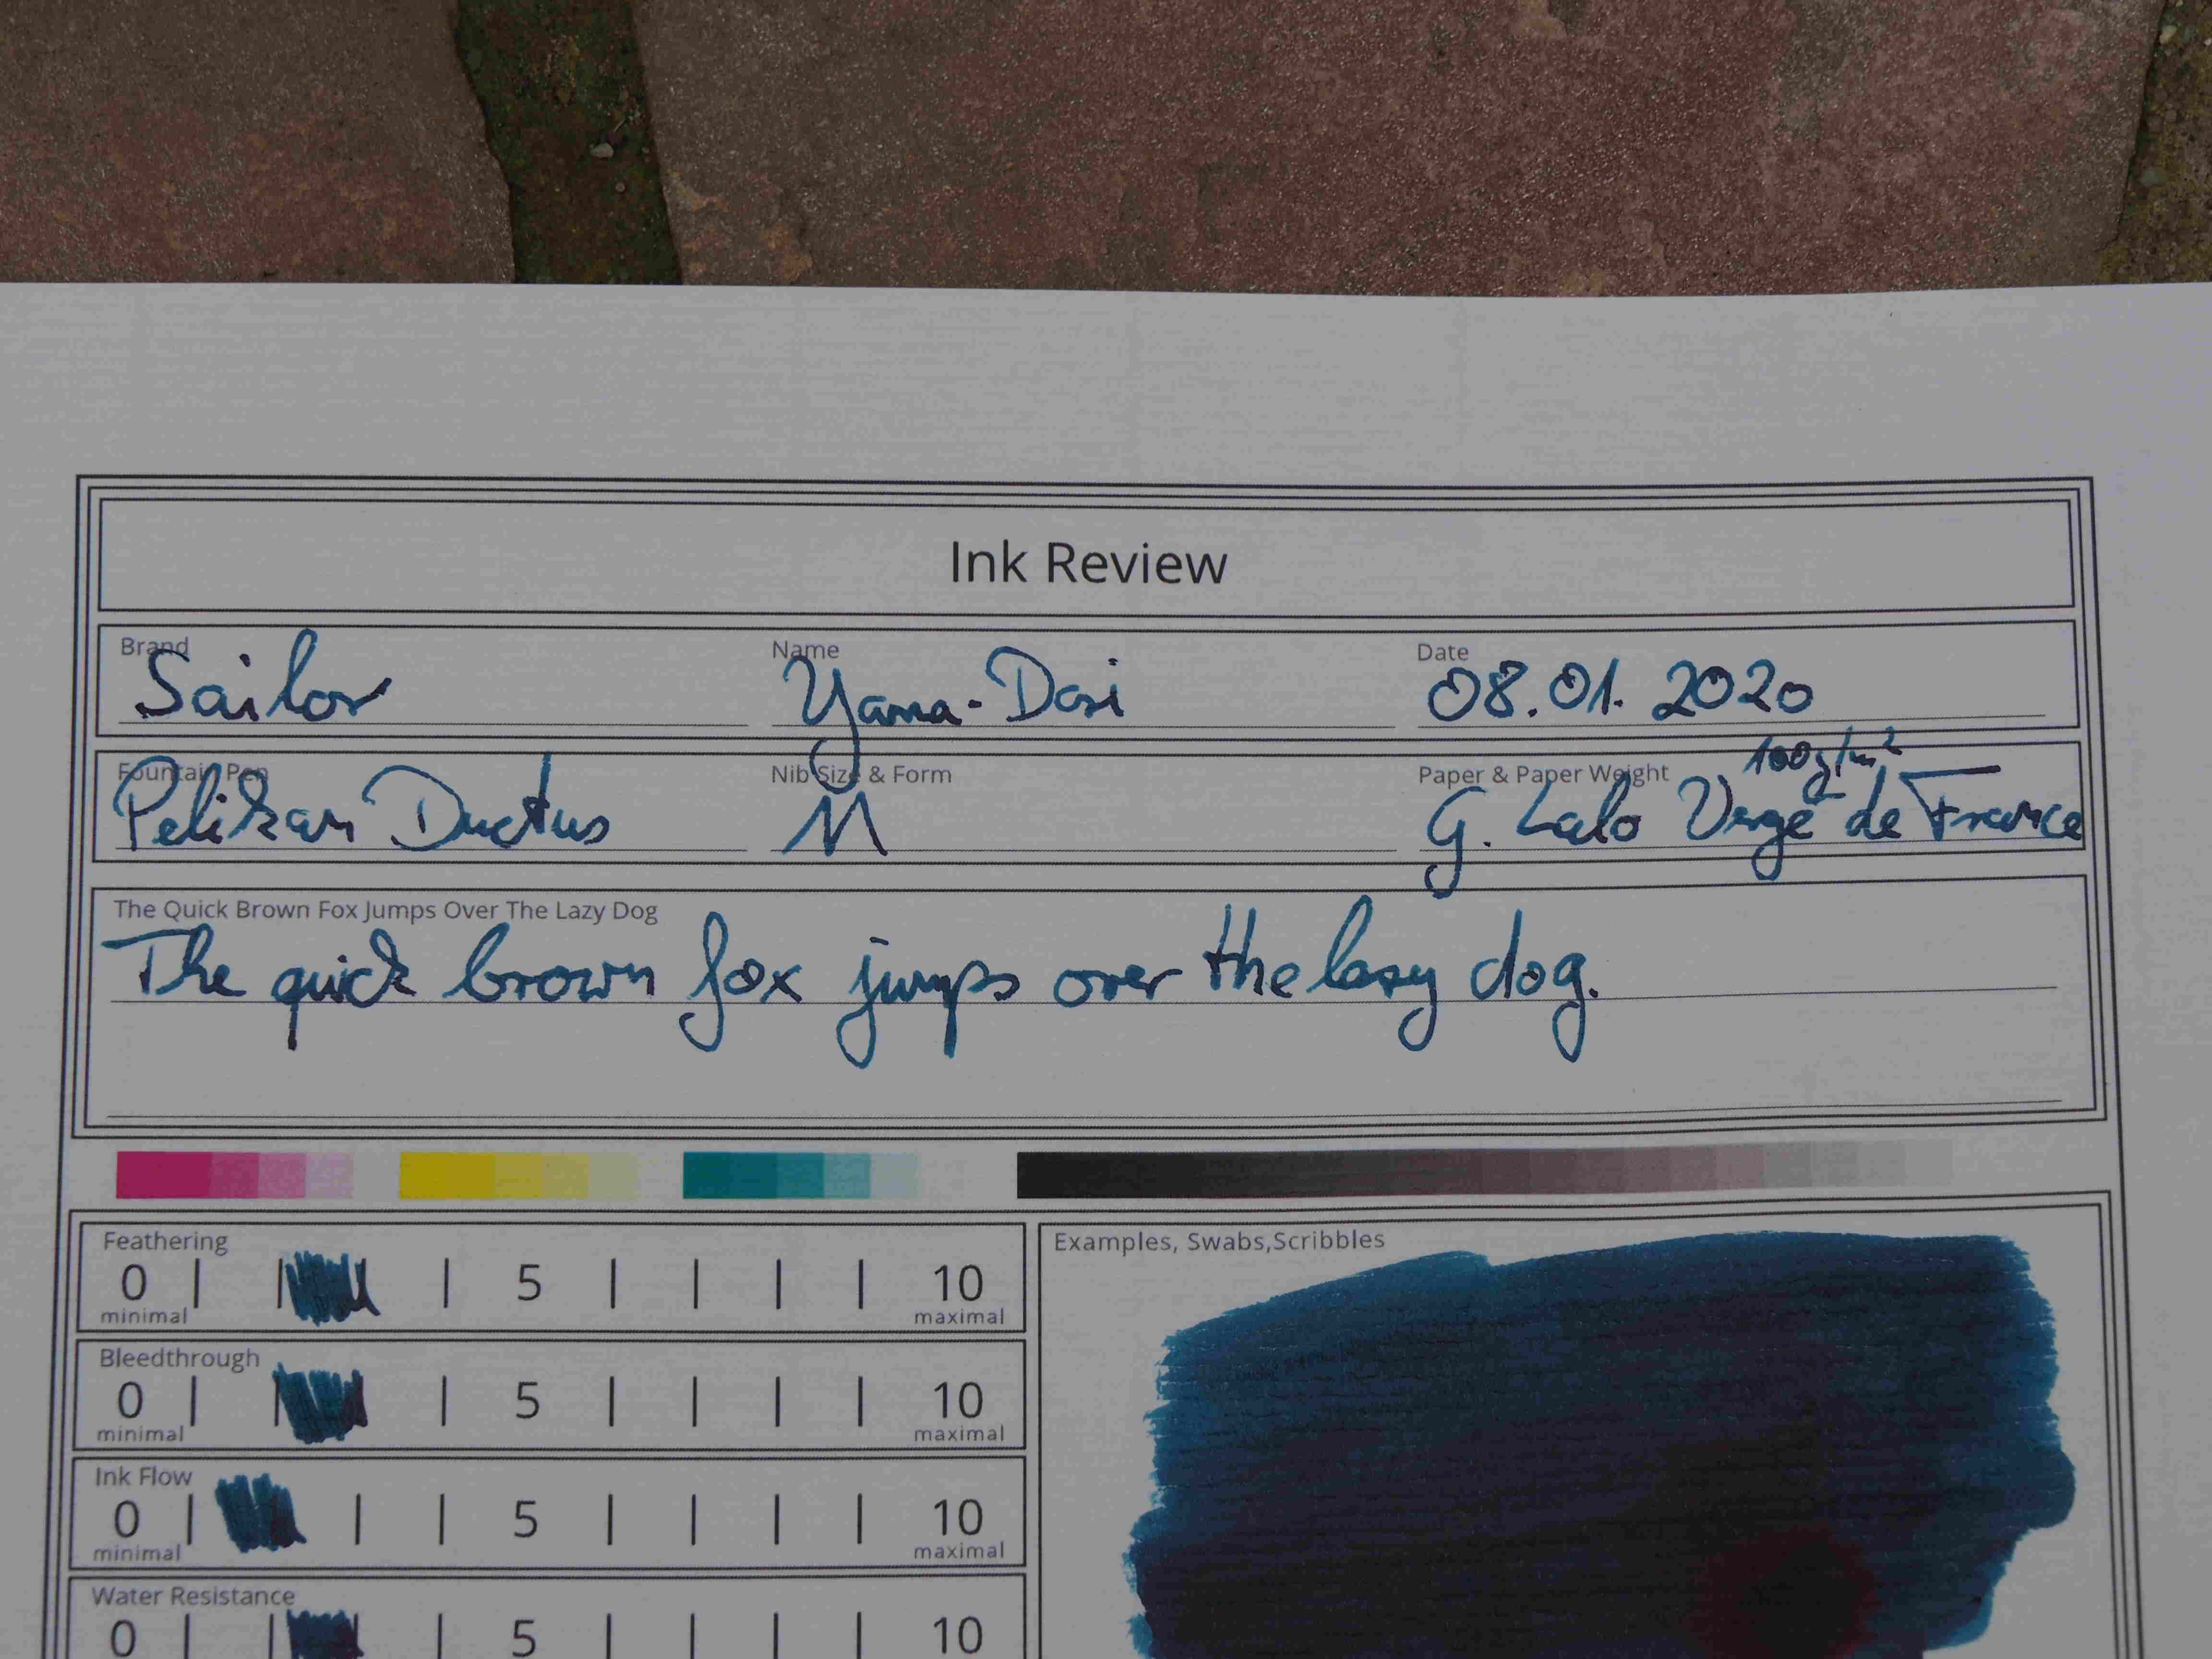 Ink Review
Brand Name Date
Sailor Yama-Dori 08.01.2020
Fountain Pen Nib Size & Form Paper & Paper Weight 100g/m²
Pelikan Ductus M G. Lalo Vergé de France
The Quick Brown Fox Jumps Over The Lazy Dog
The quick brown fox jumps over the lazy dog.
Feathering
0 5 10
minimal maximal
Bleedthrough
0 5 10
minimal maximal
Ink Flow
0 5 10
minimal maximal
Water Resistance
0 5 10
Examples, Swabs,Scribbles